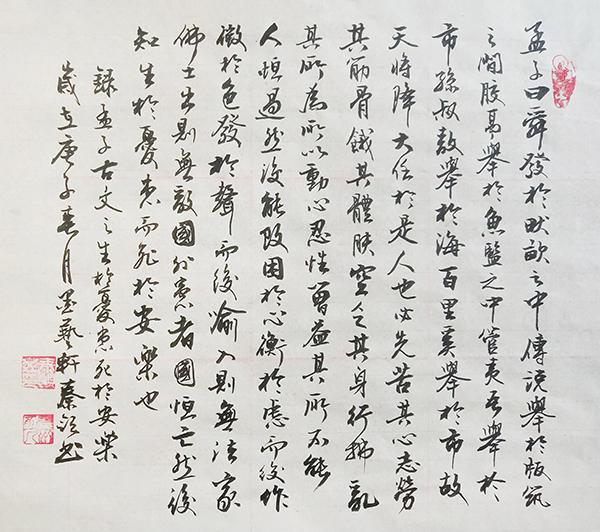 孟子曰舜發於畎畝之中傅说舉於版筑
之間胶鬲舉於魚鹽之中管夷吾舉於
市孫叔敖舉於海百里奚舉於市故
天將降大任於是人也必先苦其心志勞
其筋骨餓其體肤空乏其身行拂亂
其所為所以動心忍性曾益其所不能
人恒過然後能改困於心衡於慮而後作
徵於色發於聲而後喻入則無法家
拂士出則無敵國外患者國恒亡然後
知生於憂患而死於安樂也
錄孟子古文之生於憂患死於安樂
歲在庚子春月墨藝軒秦书